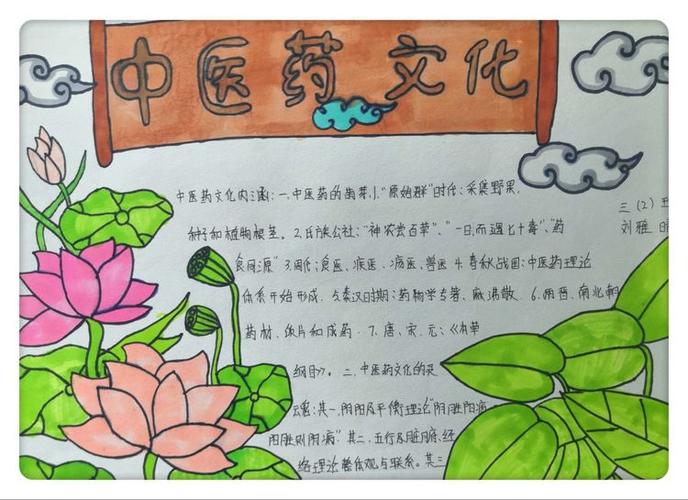 中医药文化
中医药文化内涵：一、中医药的萌芽 1."原始群"时代：采集野果、
种子和植物根茎。2.氏族公社："神农尝百草"、"一日而遇七十毒"、"药
食同源" 3.周代：食医、疾医、疡医、兽医 4.春秋战国：中医药理论
体系开始形成. 5.秦汉时期：药物学专著、麻沸散. 6.两晋、南北朝
药材、饮片和成药. 7.唐、宋、元：《本草
纲目》。二、中医药文化的灵
魂：其一.阴阳及平衡理论"阴胜阳病
阳胜则阴病"其二、五行及脏腑、经
络理论整体观与联系。其三
三（2）王
刘雅晴